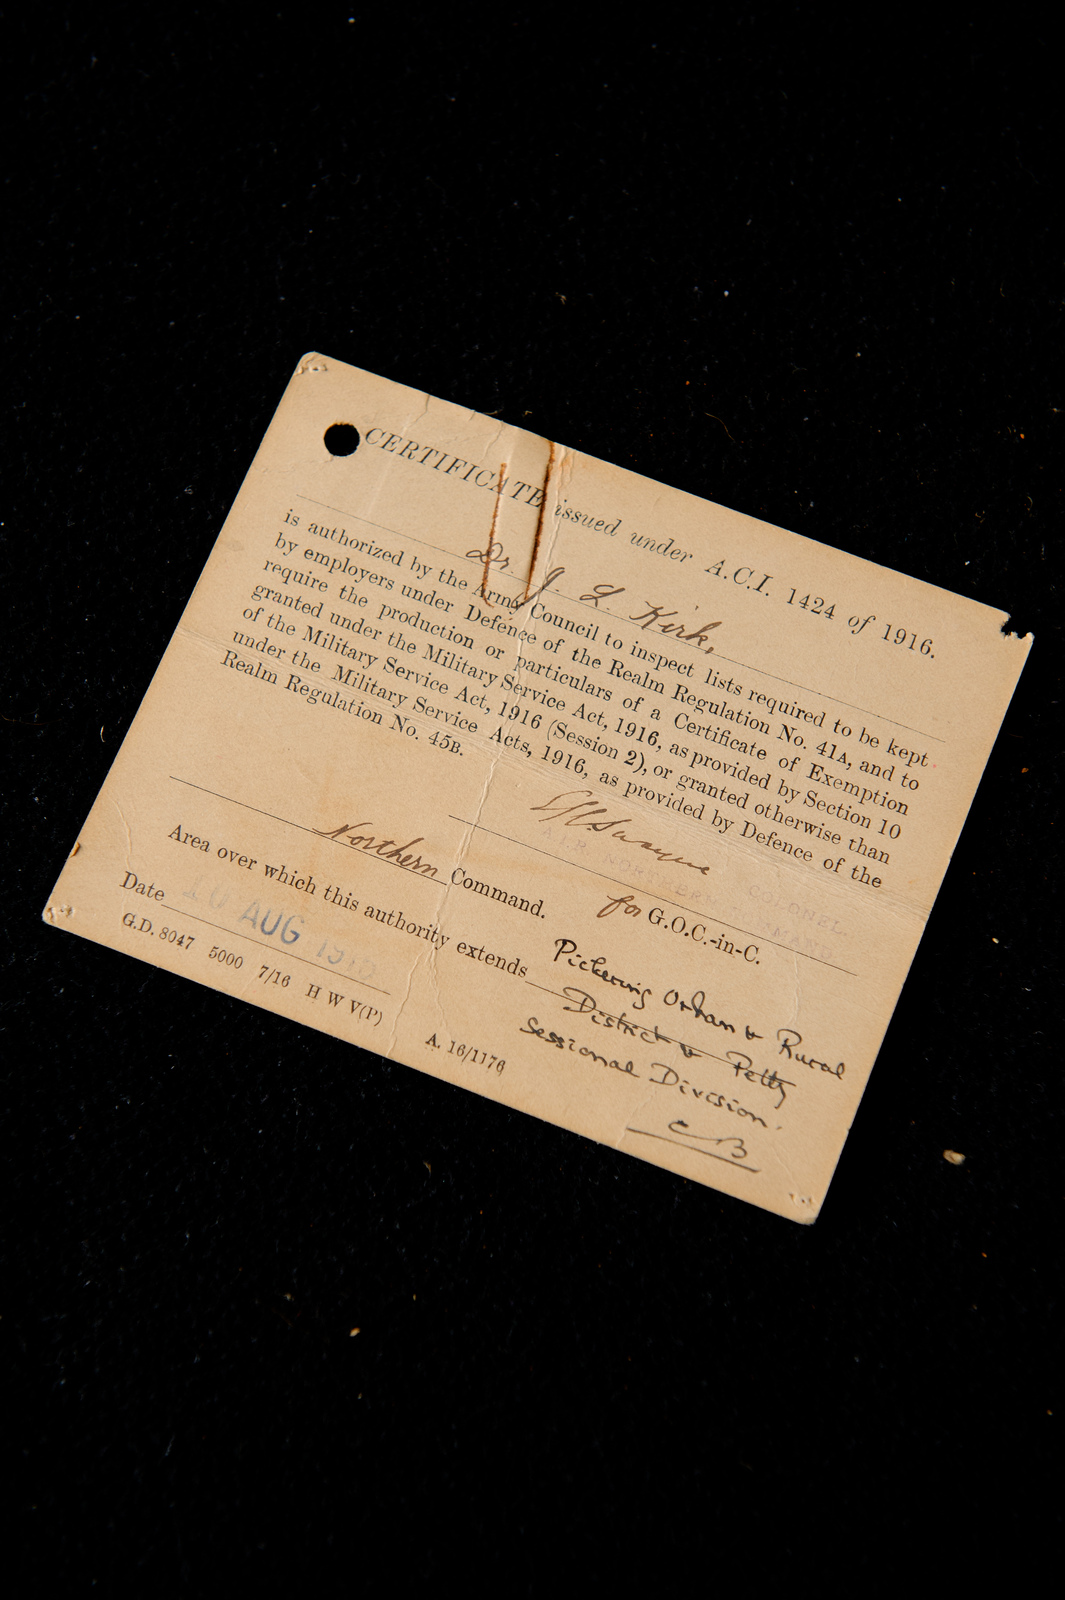 CERTIFICATE issued under A.C.I. 1424 of 1916.
Dr. J. L. Kirk,
is authorized by the Army Council to inspect lists required to be kept
by employers under Defence of the Realm Regulation No. 41A, and to
require the production or particulars of a Certificate of Exemption
granted under the Military Service Act, 1916, as provided by Section 10
of the Military Service Act, 1916 (Session 2), or granted otherwise than
under the Military Service Acts, 1916, as provided by Defence of the
Realm Regulation No. 45B.
NORTHERN
Northern Command.
for G.O.C.-in-C.
Area over which this authority extends Pickering Urban & Rural
District & Petty
Sessional Division.
CB
Date 10 AUG 1916
G.D. 8047 5000 7/16 H W V(P)
A. 16/1176